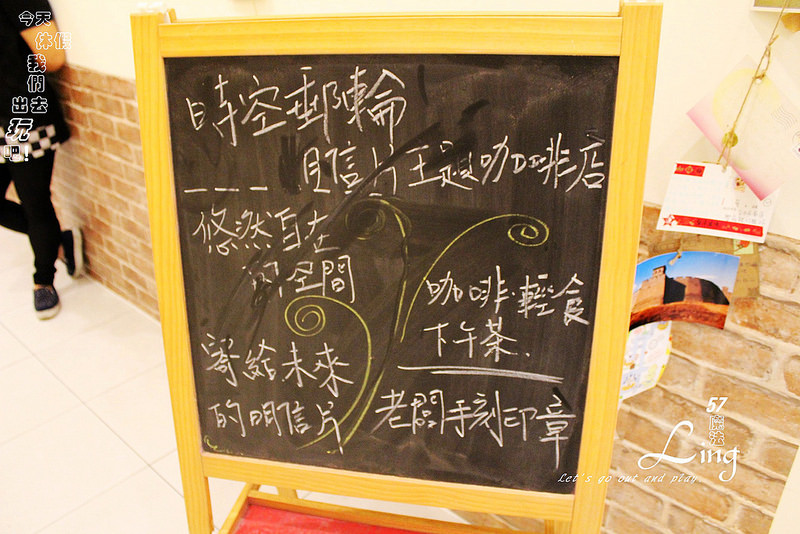 今天
休假
我們
出去
玩
吧!
時空郵輪
___ 明信片主題咖啡店
悠然自在
的空間
咖啡.輕食
下午茶.
寄給未來
的明信片
老闆手刻印章
57
魔法
Ling
Let's go out and play